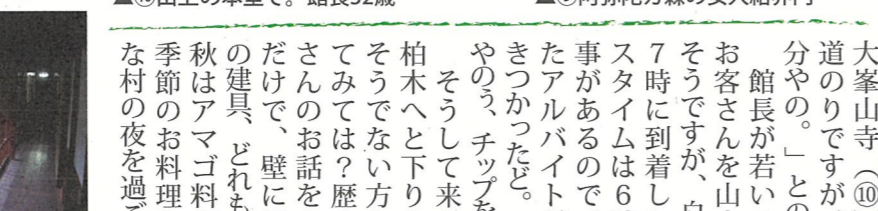 大峯山寺（⑩
道のりですが
分やの。」との
館長が若い
お客さんを山
そうですが、
7時に到着し
スタイムは6
事があるので
たアルバイト
きつかったど。
やのう、チップを
そうして来
柏木へと下り
そうでない方
てみては？歴
さんのお話を
だけで、壁に
の建具、どれも
秋はアマゴ料
季節のお料理
な村の夜を過ご